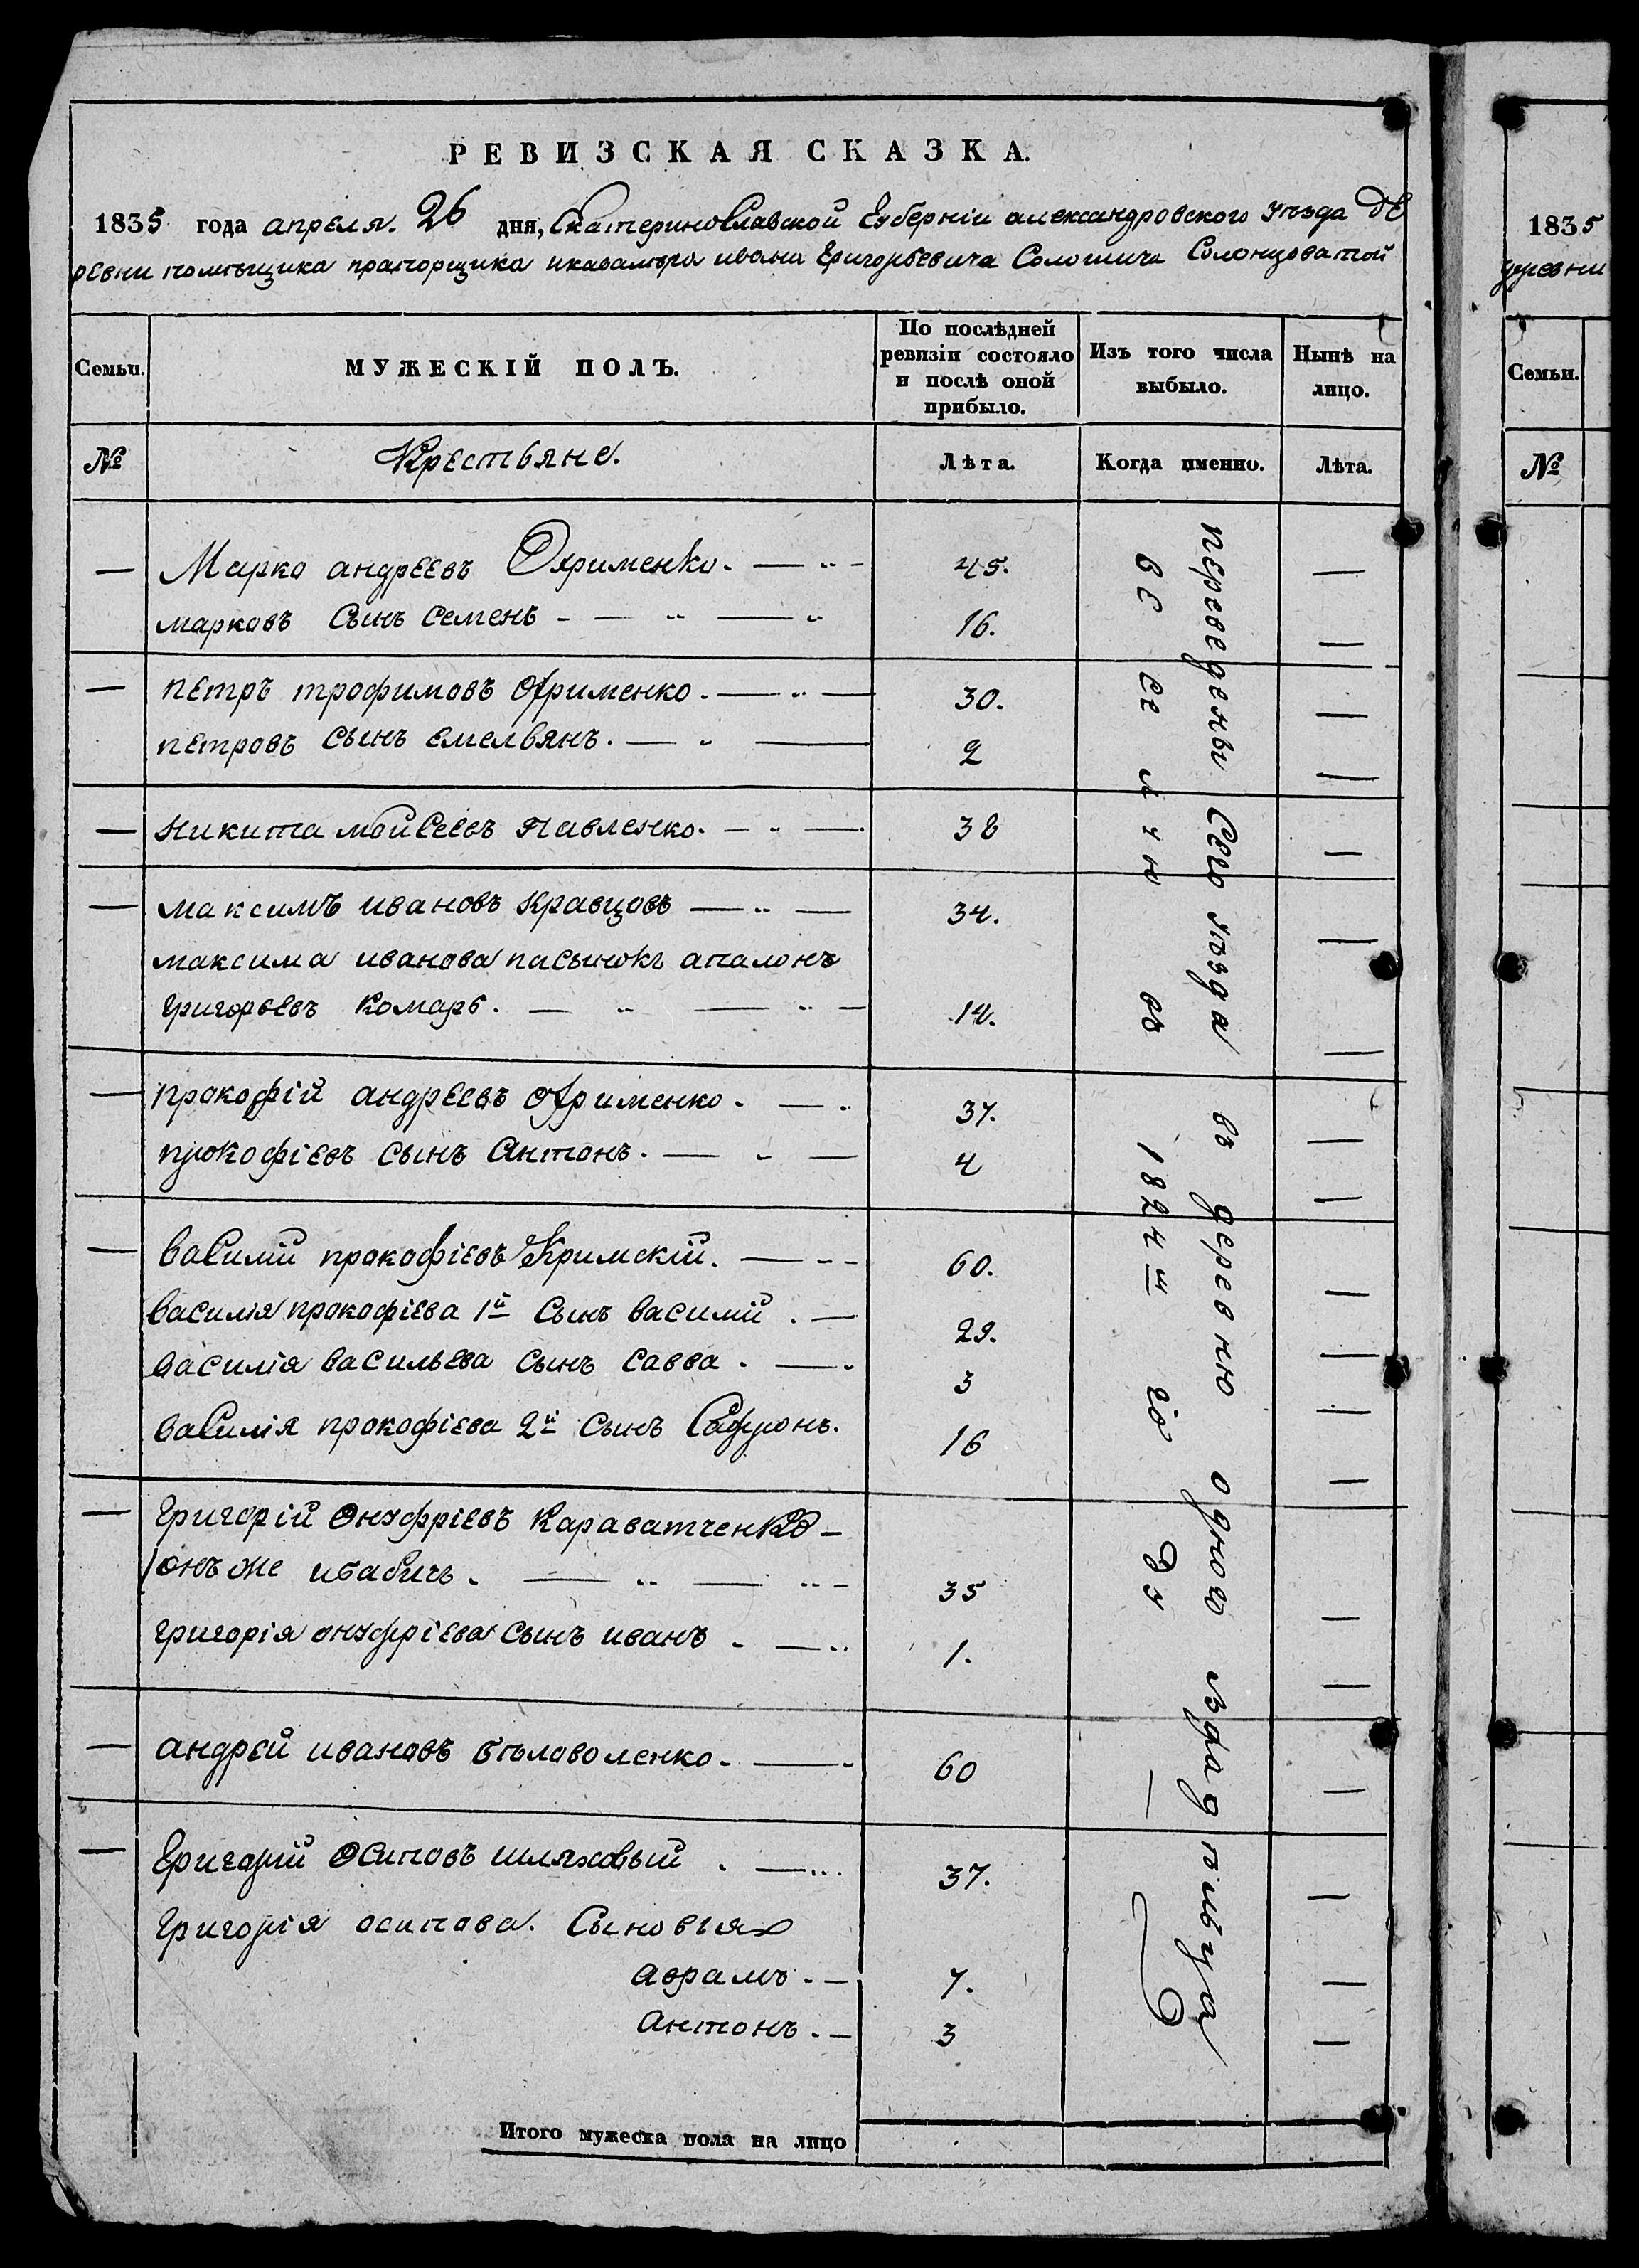 РЕВИЗСКАЯ СКАЗКА.
1835 года апреля. 26 дня, Екатеринославской Губерніи александровского уѣзда де
ревни помѣщика прапорщика икавалера ивана Григорьевича Солошича Солонцоватой
Семьи.
МУЖЕСКІЙ ПОЛЪ.
По послѣдней ревизіи состояло и послѣ оной прибыло.
Изъ того числа выбыло.
Нынѣ на лицо.
№
Крестьяне.
Лѣта.
Когда именно.
Лѣта.
— Марко андреевъ Охрименко. 45. —
марковъ сынъ семенъ 16. —
— петръ трофимовъ Охрименко. 30. —
петровъ сынъ емельянъ. 2 —
— никита мойсеевъ Павленко. 38 —
— максимъ ивановъ кравцовъ 34. —
максима иванова пасынокъ апалонъ
григорьевъ комарь. 14. —
— прокофій андреевъ Охрименко. 37. —
прокофіевъ сынъ антонъ. 4 —
— василій прокофіевъ Кримскій. 60. —
василія прокофіева 1й сынъ василій. 29. —
василія васильева сынъ савва. 3 —
василія прокофіева 2й сынъ Софронъ. 16 —
— григорій онуфріевъ караватченко
онъже ибабичь. 35 —
григорія онуфріева сынъ иванъ. 1. —
— андрей ивановъ бѣловоленко. 60 —
— Григорій осиповъ шляховый. 37. —
григорія осипова. сыновья
аврамъ. 7. —
антонъ. 3 —
переведены сего уѣзда въ деревню
въ 1824м году
Итого мужеска пола на лицо
1835
деревни
Семьи.
№